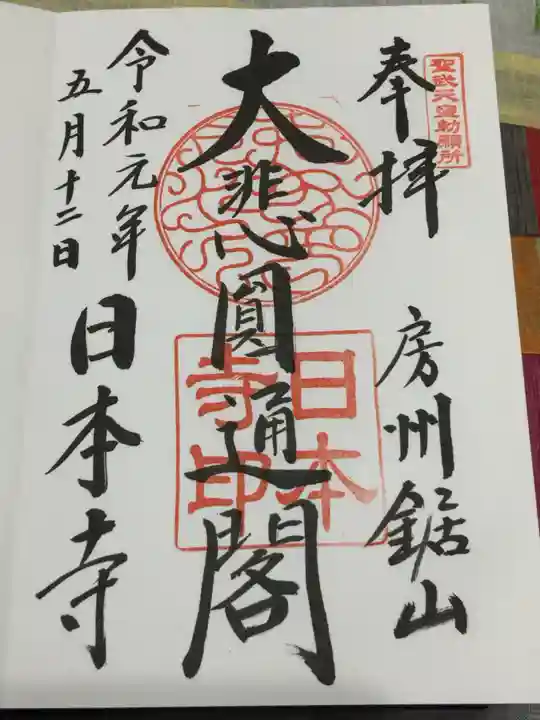 聖武天皇勅願所
奉拝
房州鋸山
大悲心圓通閣
日本
寺印
令和元年
五月十二日
日本寺